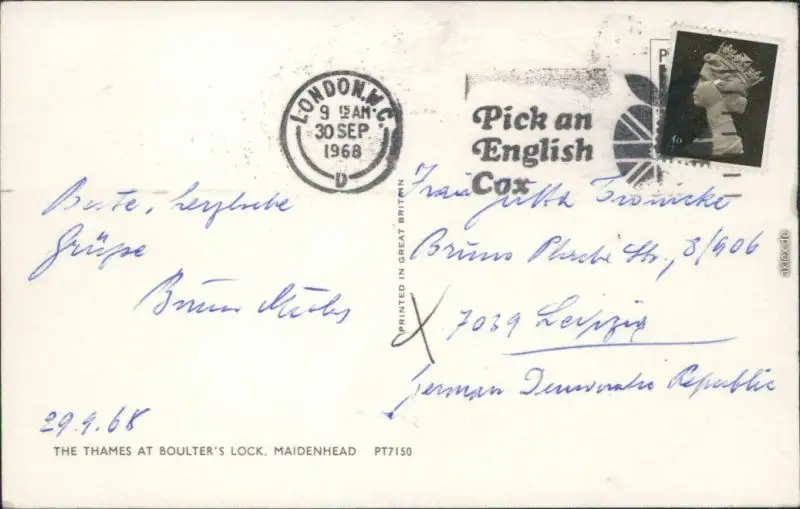 LONDON.W.C.
9 15 AM
30 SEP
1968
D
Pick an
English
Cox
Beste, herzliche
Grüße
Bruno
29.9.68
THE THAMES AT BOULTER'S LOCK, MAIDENHEAD PT7150
PRINTED IN GREAT BRITAIN
Frau Jutta
Bruno Str., 8/906
7039 Leipzig
German Democratic Republic
akpool.de